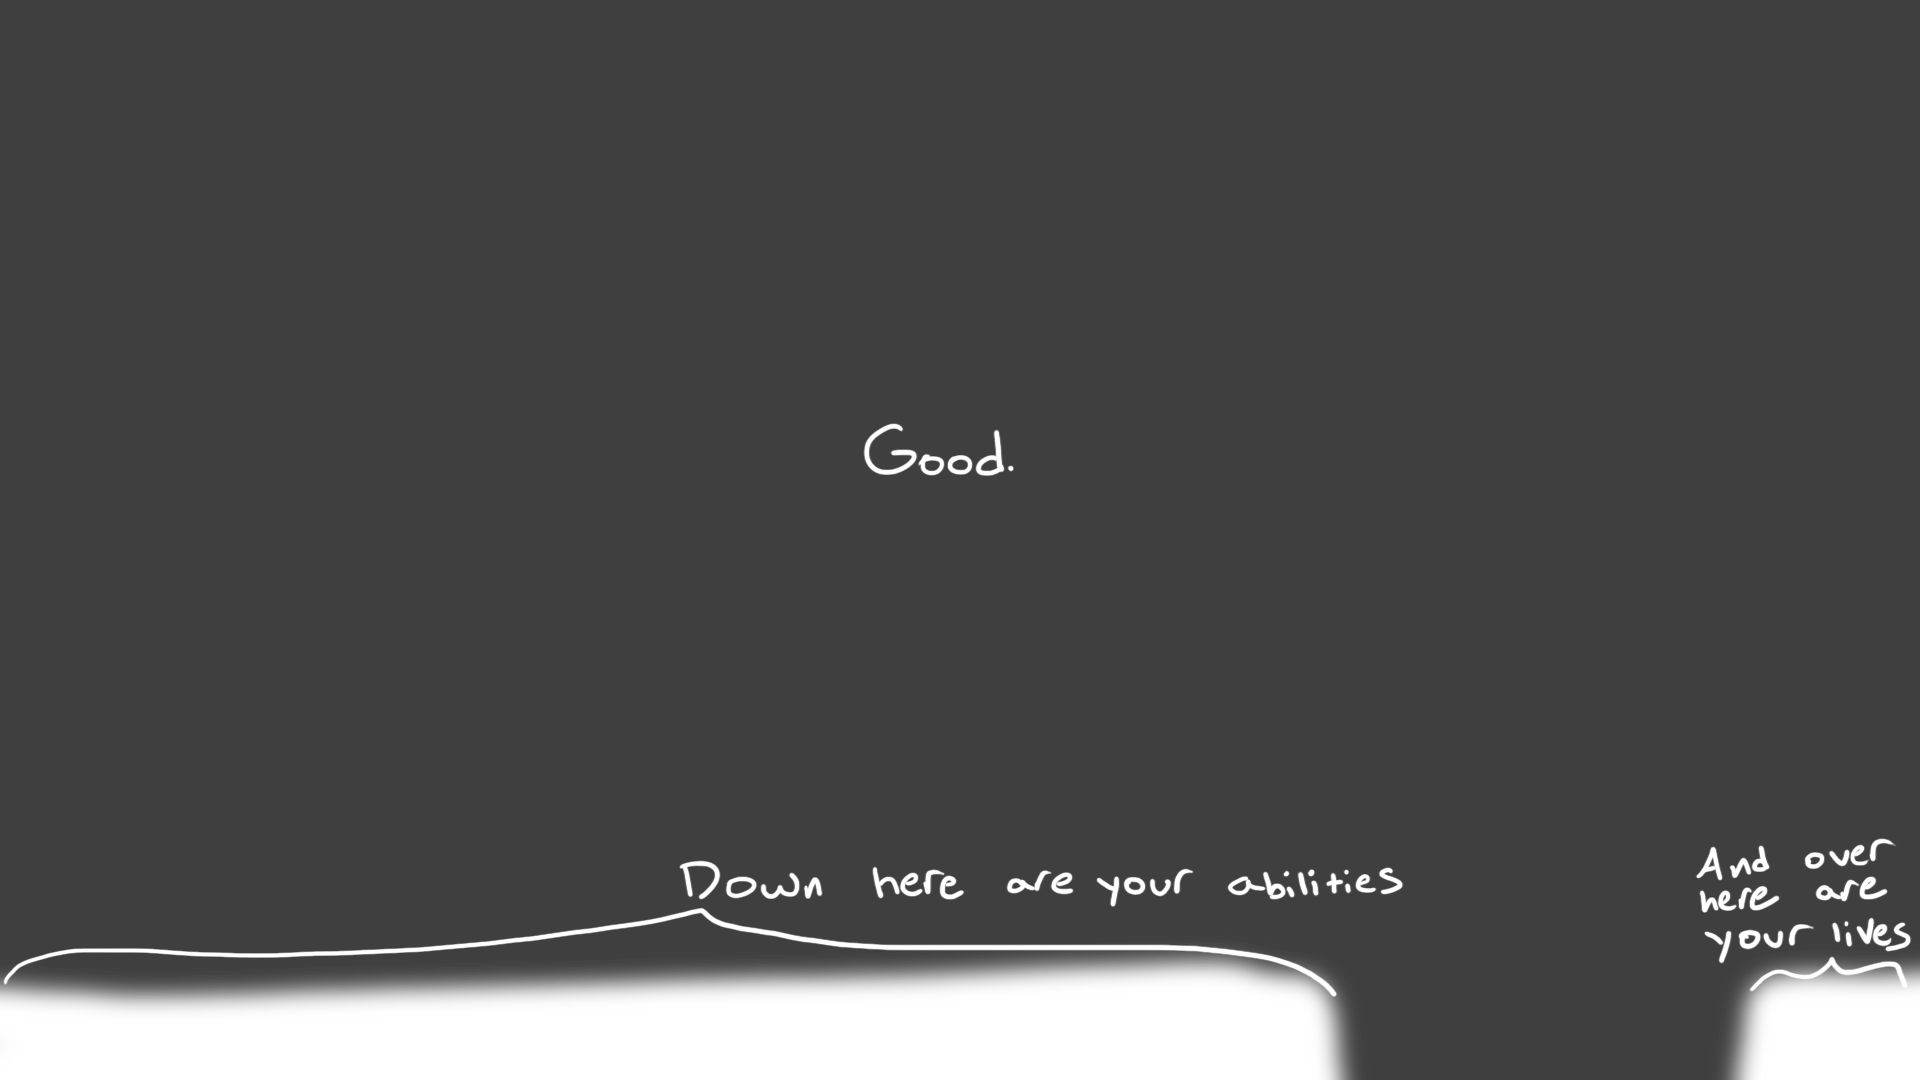 Good.
Down here are your abilities
And over
here are
your lives